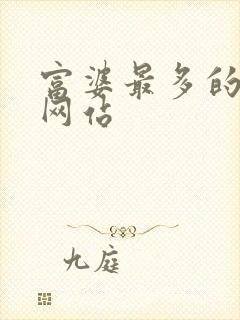 富婆最多的
网站
九庭